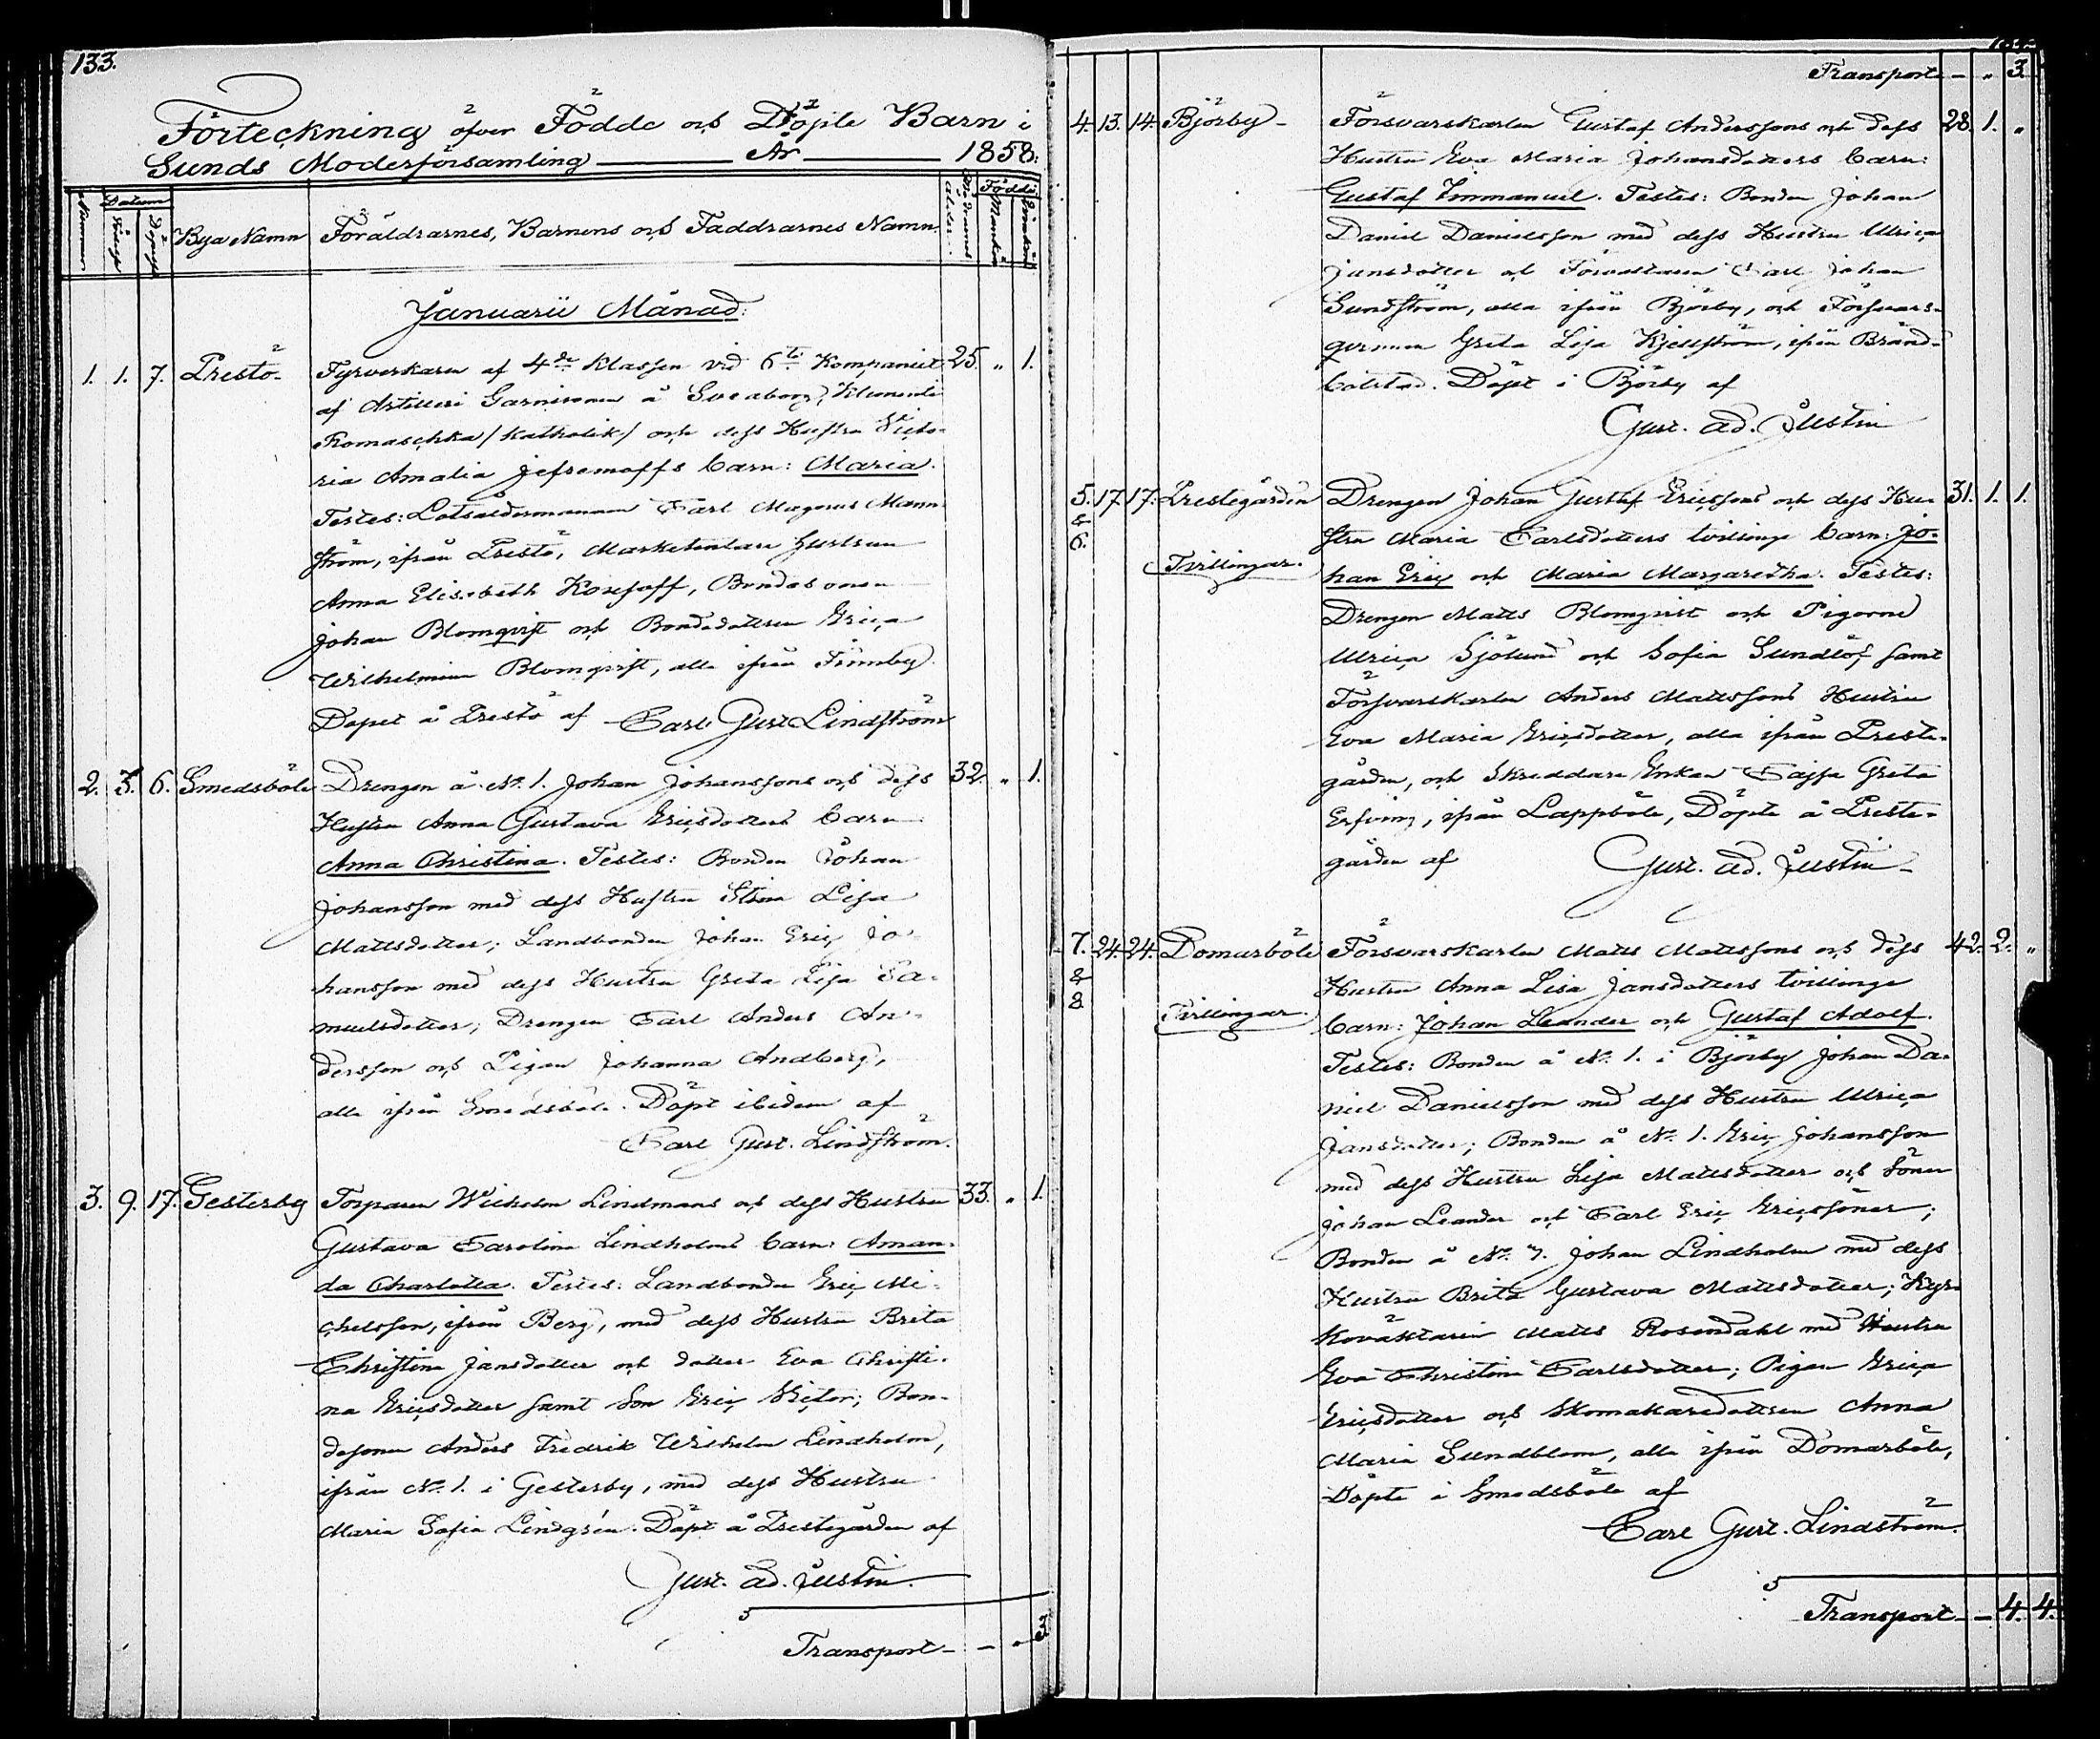 133.
Förteckning öfver Födde och Döpte Barn i
Sunds Moderförsamling År 1858:
Nummer
Datum
Födelse
Döpelse
Bya Namn
Föräldrarnes, Barnens och Faddrarnes Namn.
Mödrarnas ålder.
Födde:
Mankön
Qvinkön
Januarii Månad:
1. 1. 7. Prestö- Fyrverkaren af 4de Klassen vid 6te Kompaniet 25. " 1.
af Artilleri Garnisonen å Sveaborg, Klimenti
Romaschka /Katholik/ och dess Hustru Victo-
ria Amalia Jefremoffs barn: Maria.
Testes: Lotsåldermannen Carl Magnus Mann-
ström, ifrån Prestö, Marketentare hustrun
Anna Elisabeth Kosesoff, Bondesonen
Johan Blomqvist och Bondedottren Erica
Wilhelmina Blomqvist, alla ifrån Finnby.
Döpet å Prestö af Carl Gust. Lindström
2. 3. 6. Smedsböle Drengen å No. 1. Johan Johanssons och dess 32. " 1.
Hustru Anna Gustava Ericsdotters barn
Anna Christina. Testes: Bonden Johan
Johansson med dess Hustru Stina Lisa
Mattsdotter; Landbonden Johan Eric Jo-
hansson med dess Hustru Greta Lisa Sa-
muelsdotter; Drengen Carl Anders An-
dersson och Pigan Johanna Andberg,
alla ifrån Smedsböle. Döpt ibidem af
Carl Gust. Lindström.
3. 9. 17. Gesterby Torparen Wilhelm Lindmans och dess Hustru 33. " 1.
Gustava Carolina Lindholms barn: Aman-
da Charlotta. Testes: Landbonden Eric Mi-
chelsson, ifrån Berg, med dess Hustru Brita
Christina Jansdotter och dotter Eva Christi-
na Ericsdotter samt Son Eric Victor; Bon-
desonen Anders Fredrik Wilhelm Lindholm,
ifrån No. 1. i Gesterby, med dess Hustru
Maria Sofia Lindgrén. Döpt å Prestegården af
Gust. Ad. Justin.
Transport - - " 3.
Transport - " 3.
4. 13. 14. Björby- Försvarskarlen Gustaf Anderssons och dess 28. 1. "
Hustru Eva Maria Johansdotters barn:
Gustaf Immanuel. Testes: Bonden Johan
Daniel Danielsson med dess Hustru Ulrica
Jansdotter och Förvaltaren Carl Johan
Sundström, alla ifrån Björby, och Försvars-
qvinnan Greta Lisa Kjellström, ifrån
Döpt i Björby af
Gust. Ad. Justin
5. 17. 17. Prestegården Drengen Johan Gustaf Ericssons och dess Hu- 31. 1. 1.
& 6.
Tvillingar.
stru Maria Carlsdotters tvillinge barn: Jo-
han Eric och Maria Margaretha. Testes:
Drengen Matts Blomqvist och Pigorne
Ulrica Sjölund och Sofia Sundlöf samt
Försvarskarlen Anders Mattssons Hustru
Eva Maria Ericsdotter, alla ifrån Preste-
gården, och Skreddare Enkan Cajsa Greta
Erfving, ifrån Lappböle, Döpte å Preste-
gården af Gust. Ad. Justin-
7. 24. 24. Domarböle Försvarskarlen Matts Mattssons och dess 42. 2. "
& 8
Tvillingar.
Hustru Anna Lisa Jansdotters tvillinge
barn: Johan Leander och Gustaf Adolf.
Testes: Bonden å No. 1. i Björby Johan Da-
niel Danielsson med dess Hustru Ulrica
Jansdotter; Bonden å No. 1. Eric Johansson
med dess Hustru Lisa Mattsdotter och Söner
Johan Leander och Carl Eric Ericssöner;
Bonden å No. 7. Johan Lindholm med dess
Hustru Brita Gustava Mattsdotter; Kyr-
kovaktaren Matts Rosendahl med Hustru
Eva Christina Carlsdotter; Pigan Erica
Ericsdotter och Skomakaredottren Anna
Maria Sundblom, alla ifrån Domarböle,
Döpte i Smedsböle af
Carl Gust. Lindström.
Transport - - 4. 4.